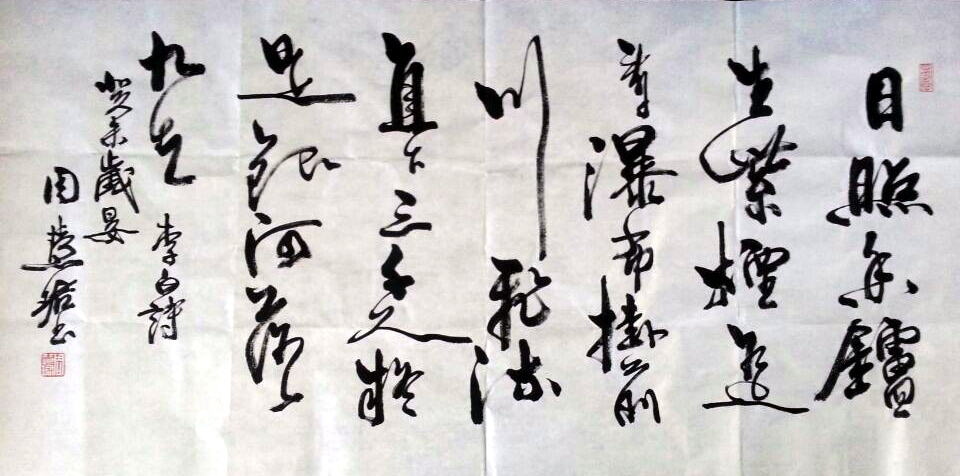 日照香鑪
生紫煙遥
看瀑布掛前
川飛流
直下三千尺疑
是銀河落
九天
李白詩
癸未歲晏
周慧珺书